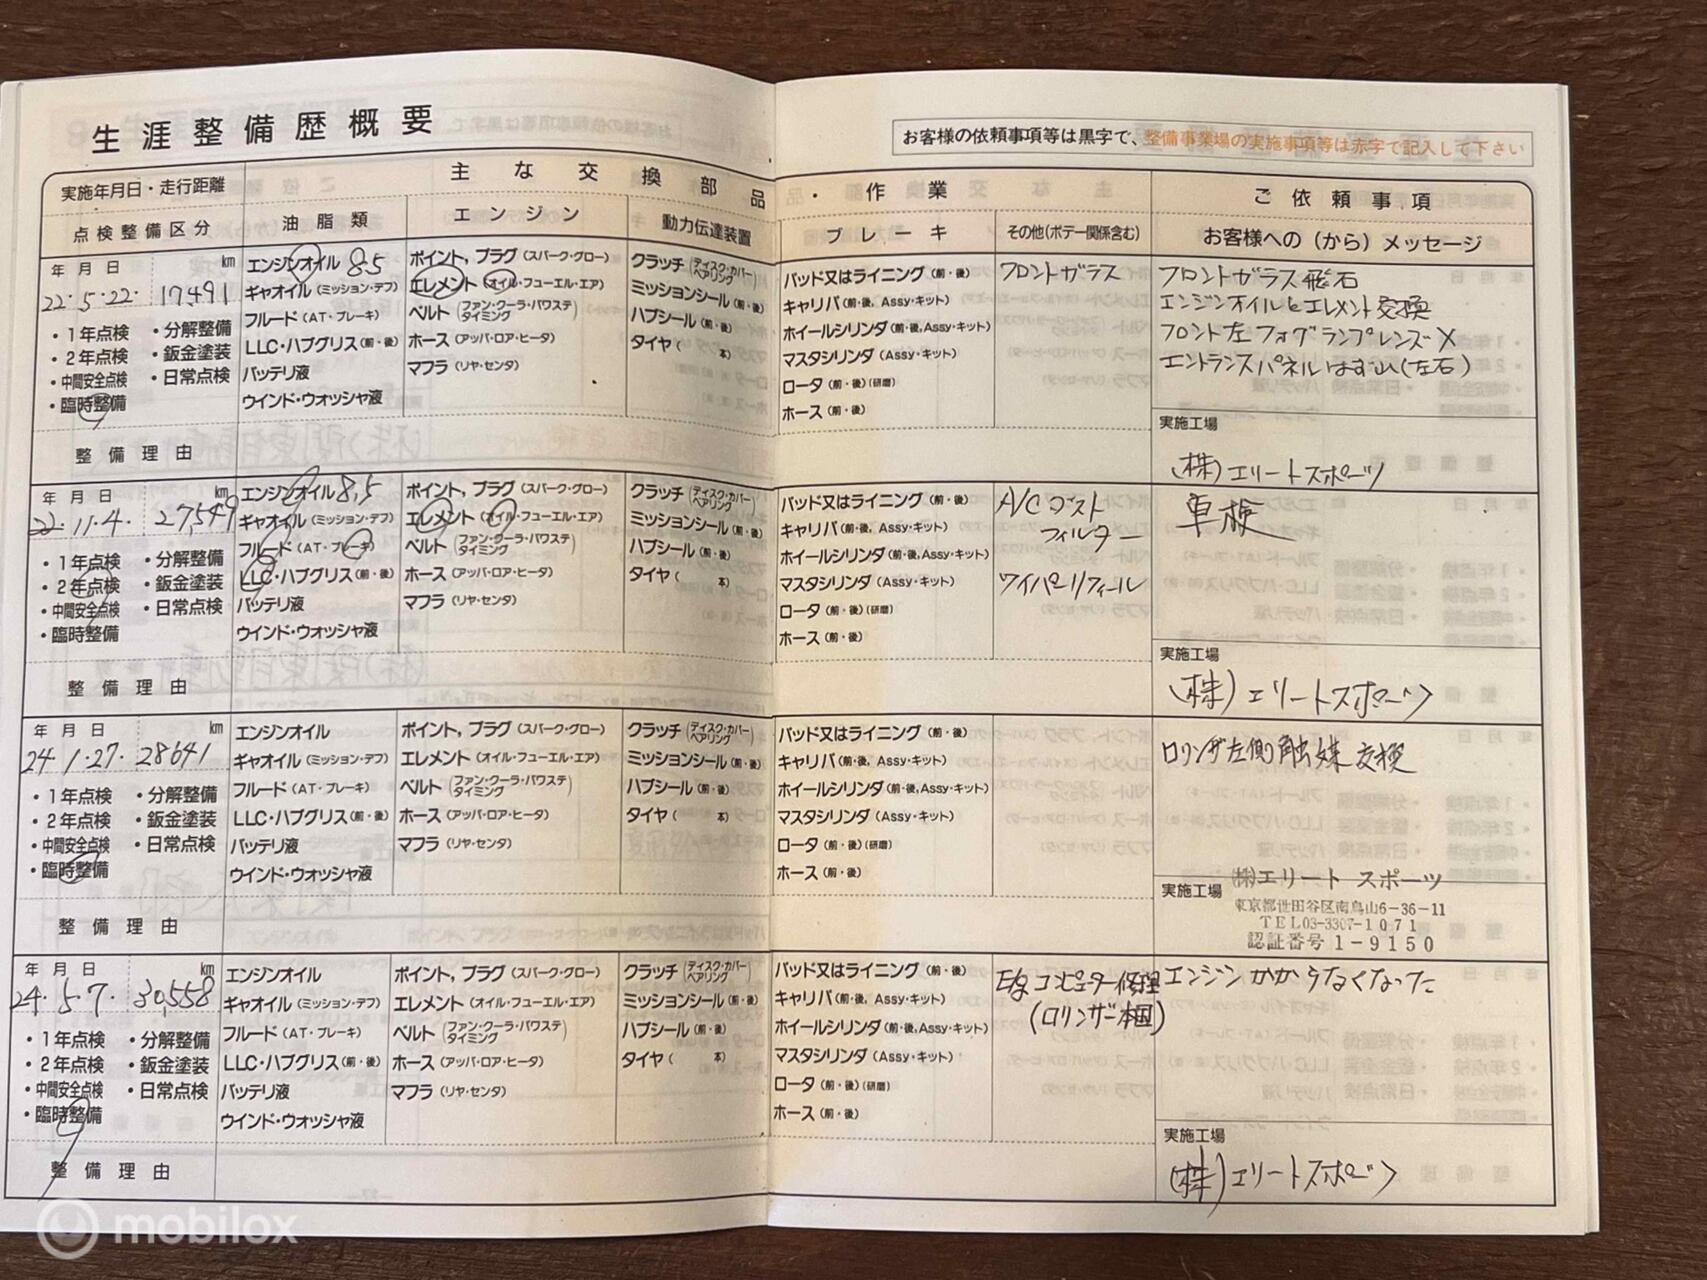 生涯整備歴概要
お客様の依頼事項等は黒字で、整備事業場の実施事項等は赤字で記入して下さい
実施年月日・走行距離
主な交換部品・作業
ご依頼事項
点検整備区分
油脂類
エンジン
動力伝達装置
ブレーキ
その他(ボデー関係含む)
お客様への(から)メッセージ
年月日 km
22・5・22・ 17491
・1年点検 ・分解整備
・2年点検 ・鈑金塗装
・中間安全点検 ・日常点検
・臨時整備
整備理由
エンジンオイル 8.5
ギヤオイル(ミッション・デフ)
フルード(AT・ブレーキ)
LLC・ハブグリス(前・後)
バッテリ液
ウインド・ウォッシャ液
ポイント, プラグ(スパーク・グロー)
エレメント(オイル・フューエル・エア)
ベルト(ファン・クーラ・パワステ タイミング)
ホース(アッパ・ロア・ヒータ)
マフラ(リヤ・センタ)
クラッチ(ディスク・カバー ベアリング)
ミッションシール(前・後)
ハブシール(前・後)
タイヤ( 本)
パッド又はライニング(前・後)
キャリパ(前・後, Assy・キット)
ホイールシリンダ(前・後,Assy・キット)
マスタシリンダ(Assy・キット)
ロータ(前・後)(研磨)
ホース(前・後)
フロントガラス
フロントガラス飛石
エンジンオイルとエレメント交換
フロント左フォグランプレンズ×
エントランスパネルはずし(左右)
実施工場
(株)エリートスポーツ
年月日 km
22・11・4・ 27,549
・1年点検 ・分解整備
・2年点検 ・鈑金塗装
・中間安全点検 ・日常点検
・臨時整備
整備理由
エンジンオイル 8,5
ギヤオイル(ミッション・デフ)
フルード(AT・ブレーキ)
LLC・ハブグリス(前・後)
バッテリ液
ウインド・ウォッシャ液
ポイント, プラグ(スパーク・グロー)
エレメント(オイル・フューエル・エア)
ベルト(ファン・クーラ・パワステ タイミング)
ホース(アッパ・ロア・ヒータ)
マフラ(リヤ・センタ)
クラッチ(ディスク・カバー ベアリング)
ミッションシール(前・後)
ハブシール(前・後)
タイヤ( 本)
パッド又はライニング(前・後)
キャリパ(前・後, Assy・キット)
ホイールシリンダ(前・後,Assy・キット)
マスタシリンダ(Assy・キット)
ロータ(前・後)(研磨)
ホース(前・後)
A/Cダスト
フィルター
ワイパーリフィール
車検
実施工場
(株)エリートスポーツ
年月日 km
24・1・27・ 28641
・1年点検 ・分解整備
・2年点検 ・鈑金塗装
・中間安全点検 ・日常点検
・臨時整備
整備理由
エンジンオイル
ギヤオイル(ミッション・デフ)
フルード(AT・ブレーキ)
LLC・ハブグリス(前・後)
バッテリ液
ウインド・ウォッシャ液
ポイント, プラグ(スパーク・グロー)
エレメント(オイル・フューエル・エア)
ベルト(ファン・クーラ・パワステ タイミング)
ホース(アッパ・ロア・ヒータ)
マフラ(リヤ・センタ)
クラッチ(ディスク・カバー ベアリング)
ミッションシール(前・後)
ハブシール(前・後)
タイヤ( 本)
パッド又はライニング(前・後)
キャリパ(前・後, Assy・キット)
ホイールシリンダ(前・後,Assy・キット)
マスタシリンダ(Assy・キット)
ロータ(前・後)(研磨)
ホース(前・後)
ロリンザ左側触媒交換
実施工場
(株)エリート スポーツ
東京都世田谷区南烏山6-36-11
TEL03-3307-1071
認証番号1-9150
年月日 km
24・5・7・ 30,558
・1年点検 ・分解整備
・2年点検 ・鈑金塗装
・中間安全点検 ・日常点検
・臨時整備
整備理由
エンジンオイル
ギヤオイル(ミッション・デフ)
フルード(AT・ブレーキ)
LLC・ハブグリス(前・後)
バッテリ液
ウインド・ウォッシャ液
ポイント, プラグ(スパーク・グロー)
エレメント(オイル・フューエル・エア)
ベルト(ファン・クーラ・パワステ タイミング)
ホース(アッパ・ロア・ヒータ)
マフラ(リヤ・センタ)
クラッチ(ディスク・カバー ベアリング)
ミッションシール(前・後)
ハブシール(前・後)
タイヤ( 本)
パッド又はライニング(前・後)
キャリパ(前・後, Assy・キット)
ホイールシリンダ(前・後,Assy・キット)
マスタシリンダ(Assy・キット)
ロータ(前・後)(研磨)
ホース(前・後)
コンピューター修理
(ロリンザー
エンジンかからなくなった
実施工場
(株)エリートスポーツ
mobilox